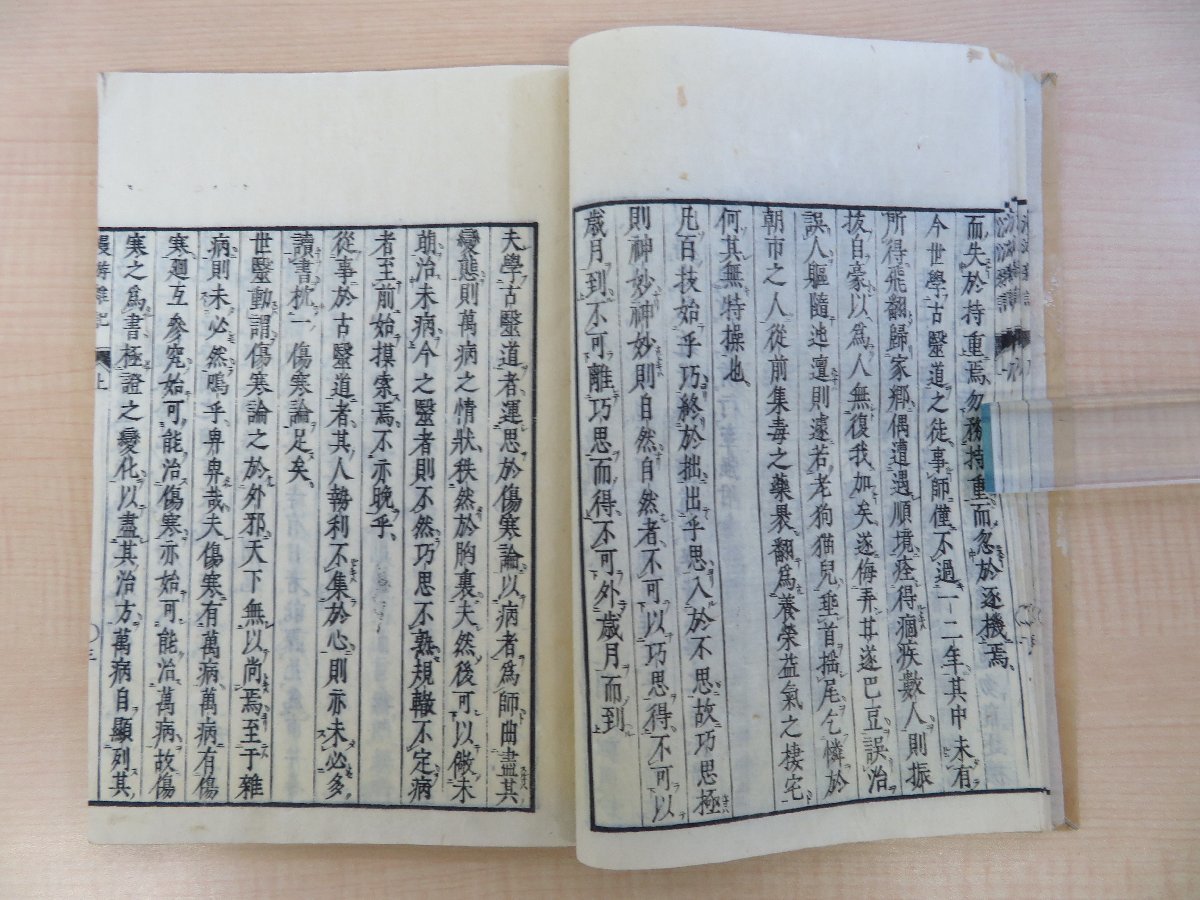 而失於持重焉、勿務持重而忽於逐機焉、
今世學古毉道之徒、事師僅不過一二年、其中未有
所得、飛翻歸家鄉、偶遭遇順境、痊得痼疾數人、則振
拔自豪以爲人無復我加矣、遂侮弄甘遂巴豆、誤治
誤人軀、隨迍邅則遽若老狗猫兒垂首搖尾乞憐於
朝市之人、從前集毒之藥褁翻爲養榮益氣之棲宅、
何其無特操也、
凡百技始乎巧、終於拙、出乎思、入於不思、故巧思極
則神妙、神妙則自然、自然者不可以巧思得、不可以
歲月到、不可離巧思而得、不可外歲月而到、
夫學古毉道者、運思於傷寒論、以病者爲師、曲盡其
變態、則萬病之情狀、秩然於胸裏、夫然後可以儆未
萌、治未病、今之毉者則不然、巧思不熟、規轍不定、病
者至前、始摸索焉、不亦晚乎、
從事於古毉道者、其人勢利不集於心、則亦未必多
讀書、枕一傷寒論足矣、
世毉動謂傷寒論之於外邪、天下無以尚焉、至于雜
病則未必然、嗚乎卑卑哉、夫傷寒有萬病、萬病有傷
寒、廻互參究、始可能治傷寒、亦始可能治萬病、故傷
寒之爲書、極證之變化、以盡其治方、萬病自顯列其
漫游雜記
上